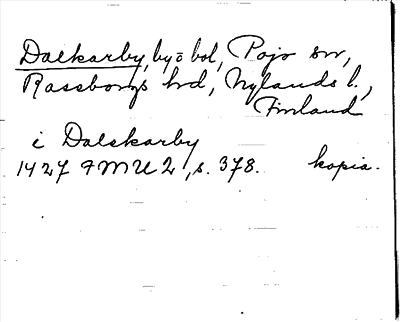 Dalkarby, by o bol, Pojo sn,
Raseborgs hrd, Nylands l.,
Finland
i Dalskarby
1427 FMU 2, s. 378. kopia.